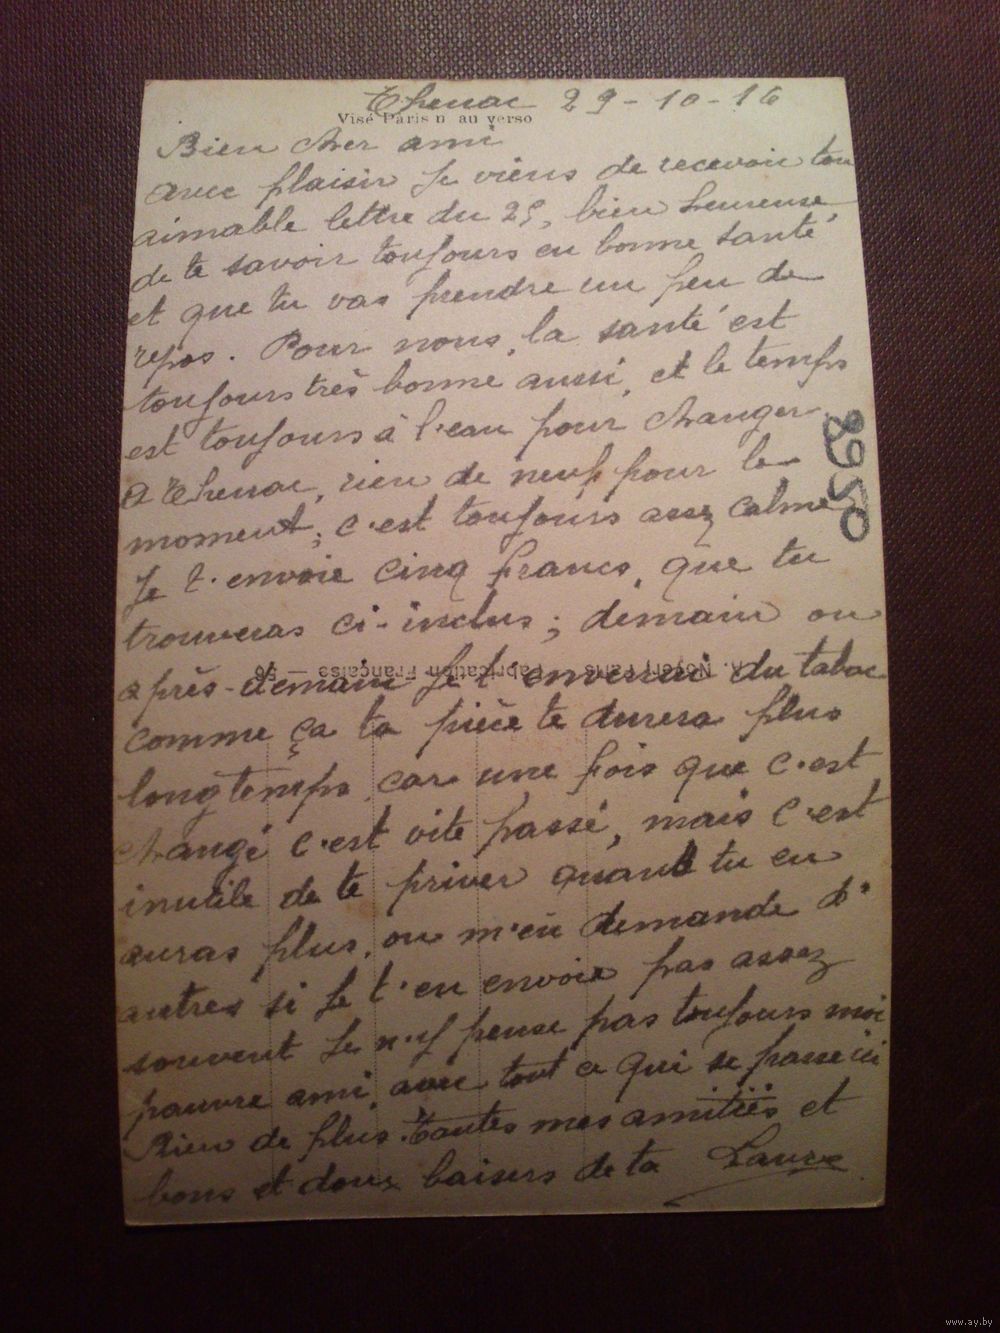 Thenac 29-10-16
Visé Paris n au verso
Bien cher ami
avec plaisir je viens de recevoir ton
aimable lettre du 25, bien heureuse
de te savoir toujours en bonne santé
et que tu vas prendre un peu de
repos. Pour nous, la santé est
toujours très bonne aussi, et le temps
est toujours à l'eau pour changer
a Thenac, rien de neuf pour le
moment; c'est toujours assez calme
Je t'envoie cinq francs, que tu
trouveras ci-inclus; demain ou
après-demain je t'enverrai du tabac
comme ça ta pièce te durera plus
longtemps, car une fois que c'est
changé c'est vite passé, mais c'est
inutile de te priver quand tu en
auras plus, ou m'en demande d'
autres si je t'en envoie pas assez
souvent je n'y pense pas toujours moi
pauvre ami, avec tout ce qui se passe ici
Rien de plus. Toutes mes amitiés et
bons et doux baisers de ta Laure
2950
A. Noyer, Paris Fabrication Française — 56
www.ay.by